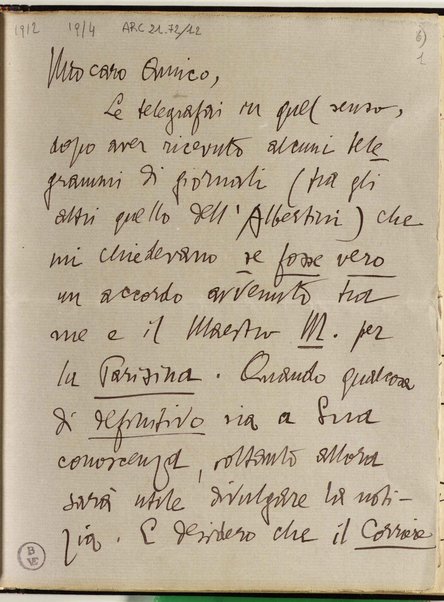 1912 19/4 ARC 21.72/12 6)
1
Mio caro Amico,
Le telegrafai in quel senso,
dopo aver ricevuto alcuni tele
grammi di giornali (tra gli
altri quello dell'Albertini) che
mi chiedevano se fosse vero
un accordo avvenuto tra
me e il Maestro M. per
la Parisina. Quando qualcosa
di definitivo sia a Sua
conoscenza, soltanto allora
sarà utile divulgare la noti-
zia. E desidero che il Corriere
B
VE